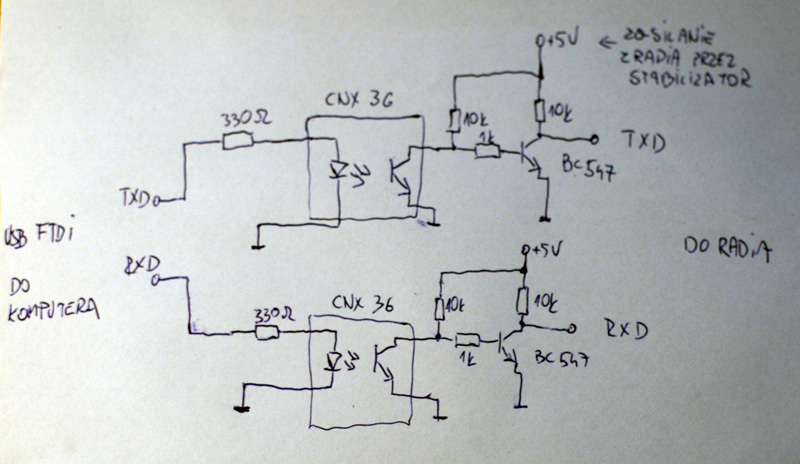 +5V
← ZASILANIE
Z RADIA PRZEZ
STABILIZATOR
CNX 36
330Ω
10k
10k
1k
TXD
BC547
TXD
USB FTDi
DO
KOMPUTERA
DO RADIA
RXD
+5V
CNX 36
330Ω
10k
10k
1k
RXD
BC547